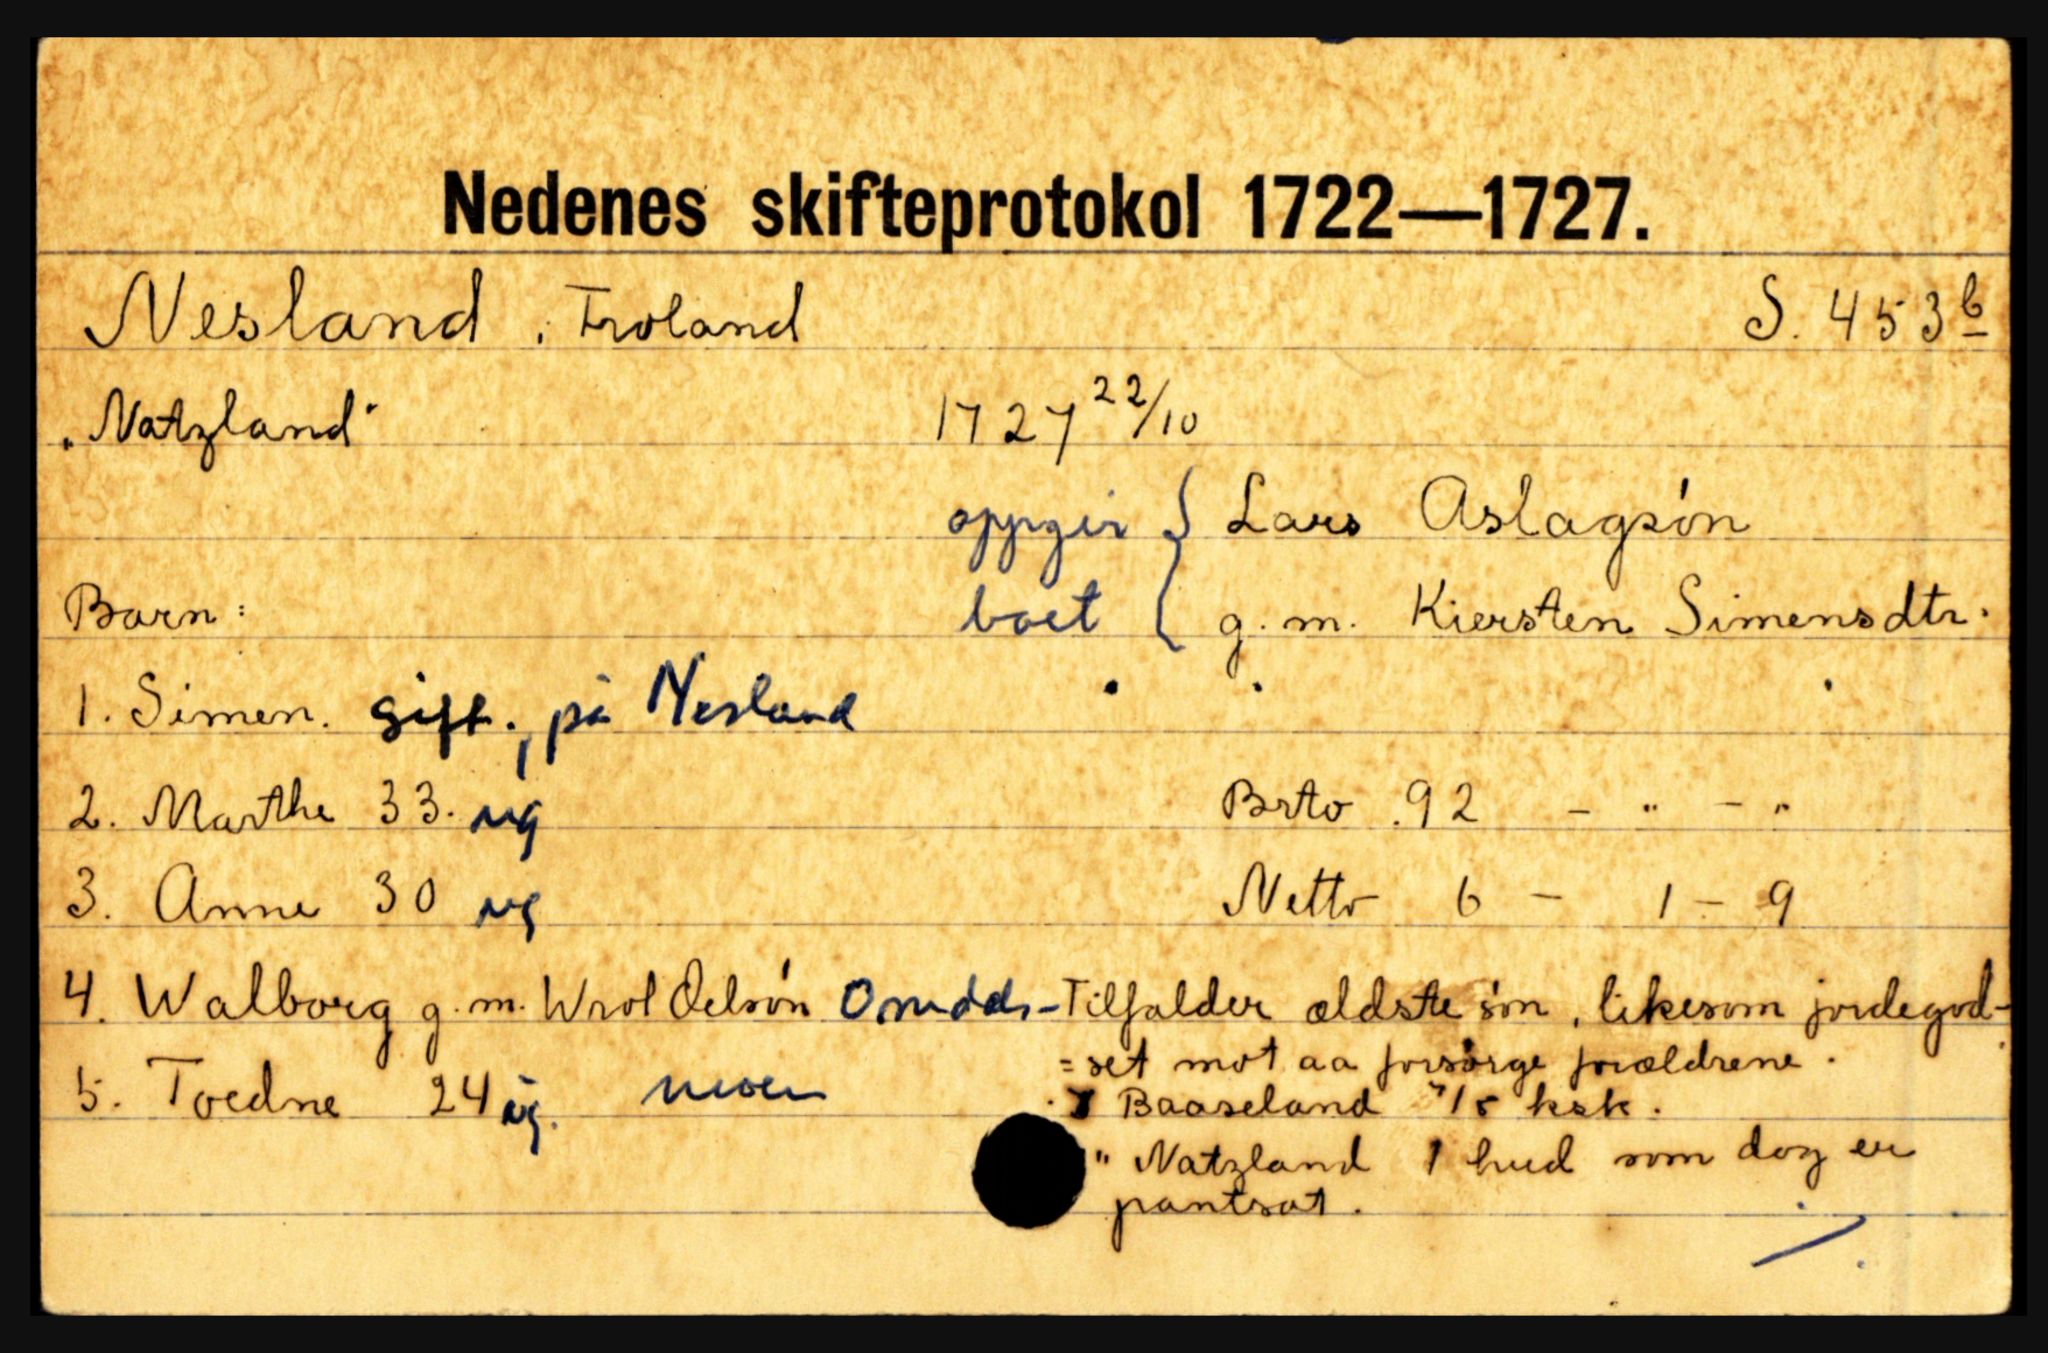 Nedenes skifteprotokol 1722—1727.
Nesland, Froland S. 453b
„Natzland" 1727 22/10
oppgir { Lars Aslagsøn
Barn: boet { g.m. Kiersten Simensdtr.
1. Simen. gift., på Nesland
2. Marthe 33. ug Brto 92 - " - "
3. Anne 30 ug Netto 6 - 1 - 9
4. Walborg g.m. Wrol Oelsøn
Tilfalder ældste søn, likesom jordegod-
=set mot aa forsørge forældrene.
5. Toedne 24 ug.
Baaseland ksk.
" Natzland 1 hud som dog er
pantsat.